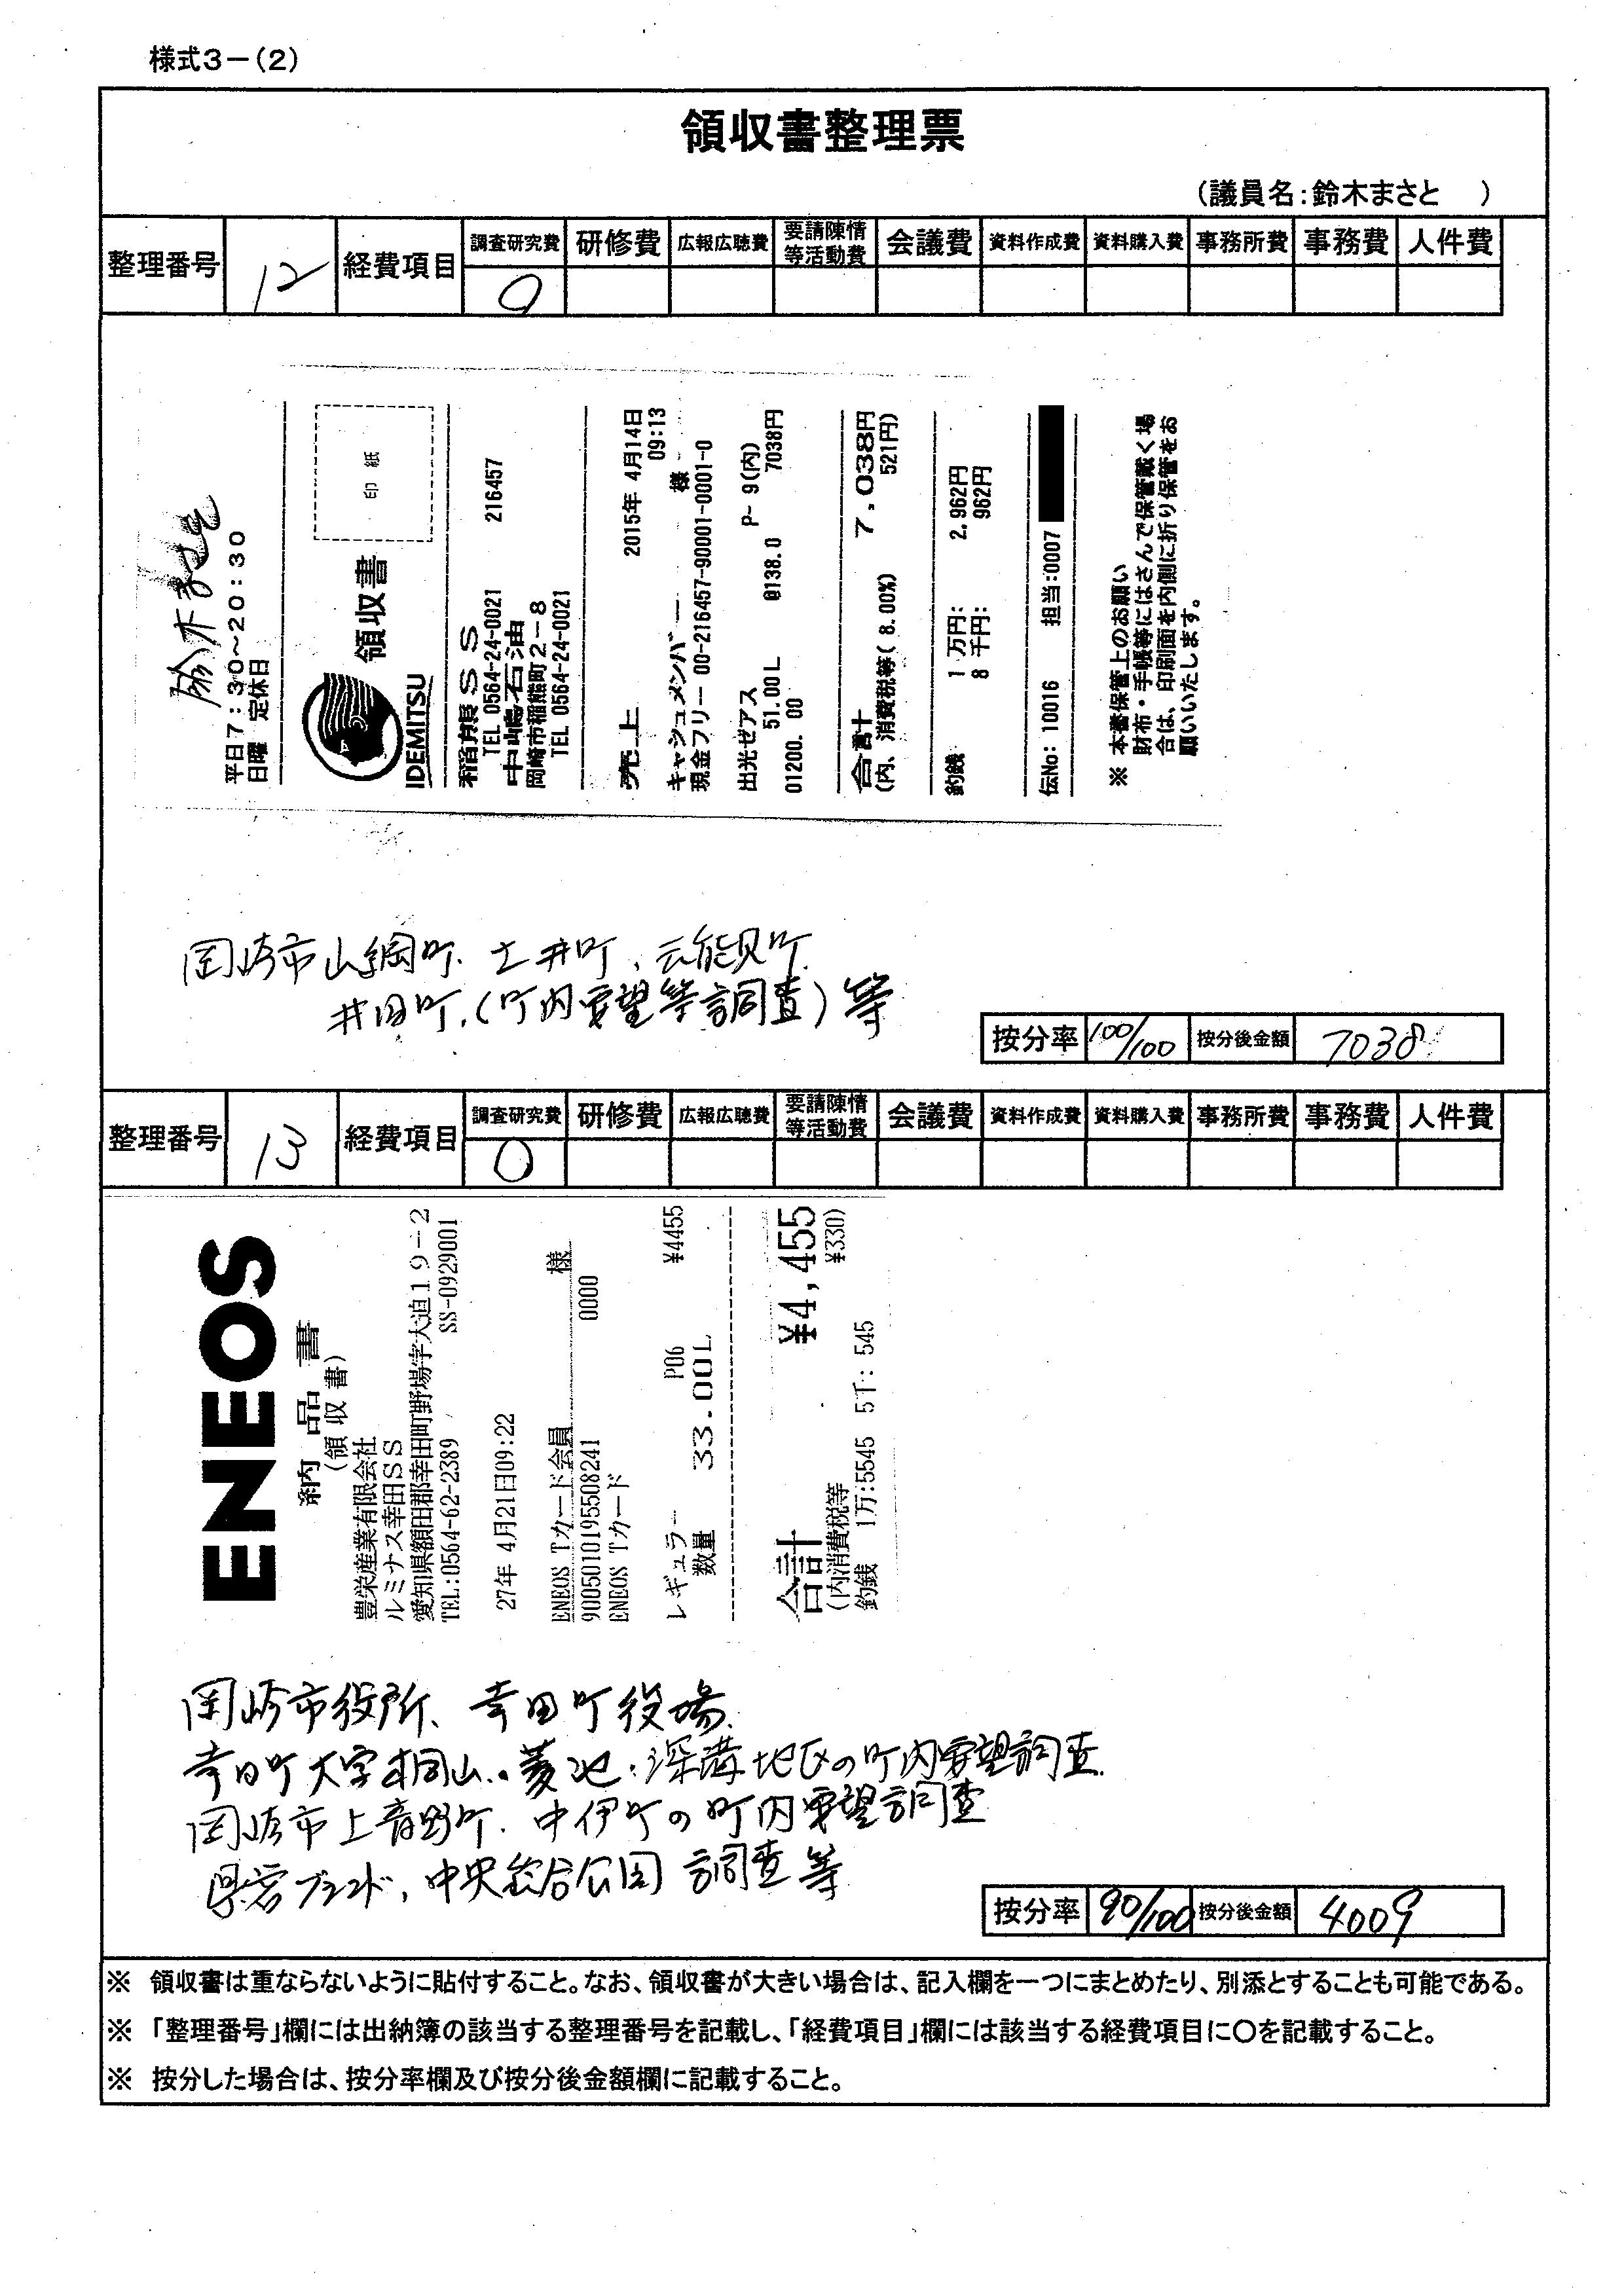 様式3-(2)
領収書整理票
(議員名:鈴木まさと )
整理番号 12 経費項目 調査研究費 研修費 広報広聴費 要請陳情等活動費 会議費 資料作成費 資料購入費 事務所費 事務費 人件費
○
鈴木まさと
平日7:30~20:30
日曜 定休日
印紙
領収書
IDEMITSU
稲熊SS 216457
TEL 0564-24-0021
中嶋石油
岡崎市稲熊町2-8
TEL 0564-24-0021
売上 2015年 4月14日
09:13
キャシュメンバー 様
現金フリー 00-216457-90001-0001-0
出光ゼアス P- 9(内)
51.00L @138.0 7038円
01200. 00
合計 7,038円
(内、消費税等( 8.00%) 521円)
釣銭 1万円: 2,962円
8千円: 962円
伝No: 10016 担当:0007
※ 本書保管上のお願い
財布・手帳等にはさんで保管戴く場
合は、印刷面を内側に折り保管をお
願いいたします。
岡崎市山綱町、土井町、元能見町、
井田町、(町内要望等調査)等
按分率 100/100 按分後金額 7038
整理番号 13 経費項目 調査研究費 研修費 広報広聴費 要請陳情等活動費 会議費 資料作成費 資料購入費 事務所費 事務費 人件費
○
ENEOS
納品書
(領収書)
豊栄産業有限会社
ルミナス幸田SS
愛知県額田郡幸田町野場字大迫19-2
TEL:0564-62-2389 SS-0929001
27年 4月21日09:22
ENEOS Tカード会員 様
9005010195508241 0000
ENEOS Tカード
レギュラー P06 ¥4455
数量 33.00L
合計 ¥4,455
(内消費税等 ¥330)
釣銭 1万:5545 5千: 545
岡崎市役所、幸田町役場、
幸田町大字桐山・菱池・深溝地区の町内要望調査、
岡崎市上青野町、中伊町の町内要望調査
県営グランド、中央総合公園 調査等
按分率 90/100 按分後金額 4009
※ 領収書は重ならないように貼付すること。なお、領収書が大きい場合は、記入欄を一つにまとめたり、別添とすることも可能である。
※ 「整理番号」欄には出納簿の該当する整理番号を記載し、「経費項目」欄には該当する経費項目に○を記載すること。
※ 按分した場合は、按分率欄及び按分後金額欄に記載すること。